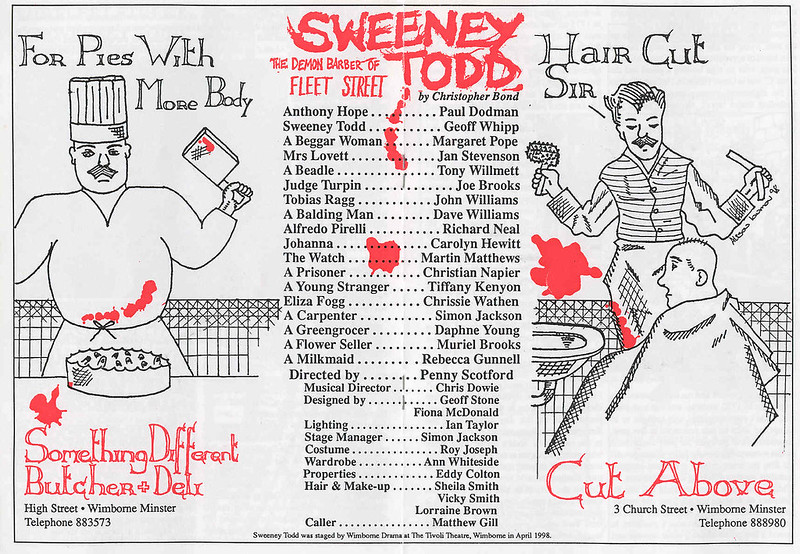 For Pies With
More Body
Something Different
Butcher + Deli
High Street • Wimborne Minster
Telephone 883573
SWEENEY
TODD
THE DEMON BARBER OF
FLEET STREET
by Christopher Bond
Anthony Hope . . . . . . . . . Paul Dodman
Sweeney Todd . . . . . . . . . . Geoff Whipp
A Beggar Woman . . . . . . . Margaret Pope
Mrs Lovett . . . . . . . . . . . . Jan Stevenson
A Beadle . . . . . . . . . . . . . . Tony Willmett
Judge Turpin . . . . . . . . . . . . Joe Brooks
Tobias Ragg . . . . . . . . . . . John Williams
A Balding Man . . . . . . . . . Dave Williams
Alfredo Pirelli . . . . . . . . . . . Richard Neal
Johanna . . . . . . . . . . . . . Carolyn Hewitt
The Watch . . . . . . . . . . . Martin Matthews
A Prisoner . . . . . . . . . . . Christian Napier
A Young Stranger . . . . . . Tiffany Kenyon
Eliza Fogg . . . . . . . . . . . Chrissie Wathen
A Carpenter . . . . . . . . . . . Simon Jackson
A Greengrocer . . . . . . . . . Daphne Young
A Flower Seller . . . . . . . . . Muriel Brooks
A Milkmaid . . . . . . . . . . Rebecca Gunnell
Directed by . . . . . . . . Penny Scotford
Musical Director . . . . . . . Chris Dowie
Designed by . . . . . . . . . . . Geoff Stone
Fiona McDonald
Lighting . . . . . . . . . . . . . . . Ian Taylor
Stage Manager . . . . . . Simon Jackson
Costume . . . . . . . . . . . . . . Roy Joseph
Wardrobe . . . . . . . . . . Ann Whiteside
Properties . . . . . . . . . . . . Eddy Colton
Hair & Make-up . . . . . . . Sheila Smith
Vicky Smith
Lorraine Brown
Caller . . . . . . . . . . . . . . Matthew Gill
Sweeney Todd was staged by Wimborne Drama at The Tivoli Theatre, Wimborne in April 1998.
Hair Cut
Sir
Cut Above
3 Church Street • Wimborne Minster
Telephone 888980